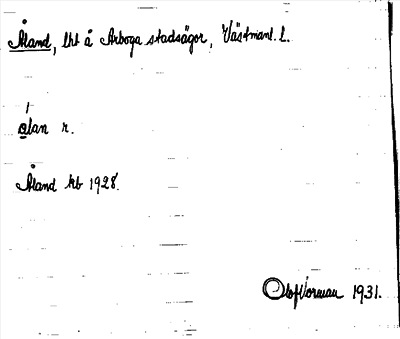 Åland, lht å Arboga stadsägor, Västmanl. L.
ólan r.
Åland kb 1928.
Olof Norman 1931.